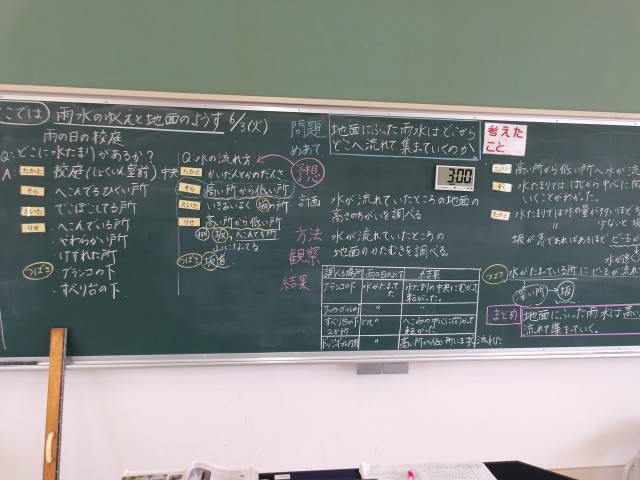 ここでは 雨水のゆくえと地面のようす 6/3(火)
雨の日の校庭
Q:どこに水たまりがあるか?
A: たかと 校庭(しいくい堂前)中央
そら へこんでるひくい所
えいた でこぼこしてる所
りせ へこんでいる所
やわらかい所
けずれた所
つばさ ブランコの下
すべり台の下
Q:水の流れ方
たかと かいだんとかのだんさ
そら 高い所から低い所
えいた いきおいよく 坂の所
りせ 高い所から低い所
坂 へこんだ所
山になってる
つばさ 坂道
問題
めあて
予想
計画
方法
観察
結果
地面にふった雨水はどこから
どこへ流れて集まっていくのか
3:00
水が流れていたところの地面の
高さのちがいを調べる
水が流れていたところの
地面のかたむきを調べる。
調べる場所 雨の日のようす 結果
ブランコの下 水がたまってた 水たまりの中央にむかって
転がった。
サッカーゴールの下 〃 〃
すべり台の下 〃 へこみの中心に向かって
転がった
高い所から低い所に水が流れた
考えた
こと
高い所から低い所へ水が流
そら 水たまりでははじから中心に向か
いくことがわかった。
たかと 水たまりでは水の量が多いほど
少ないと
坂が急であればあるほどビー玉
水が速
つばさ 水がたまっている所にビー玉が流れ
深い所 → 坂
まとめ 地面にふった雨水は高い
流れて集まっていく。